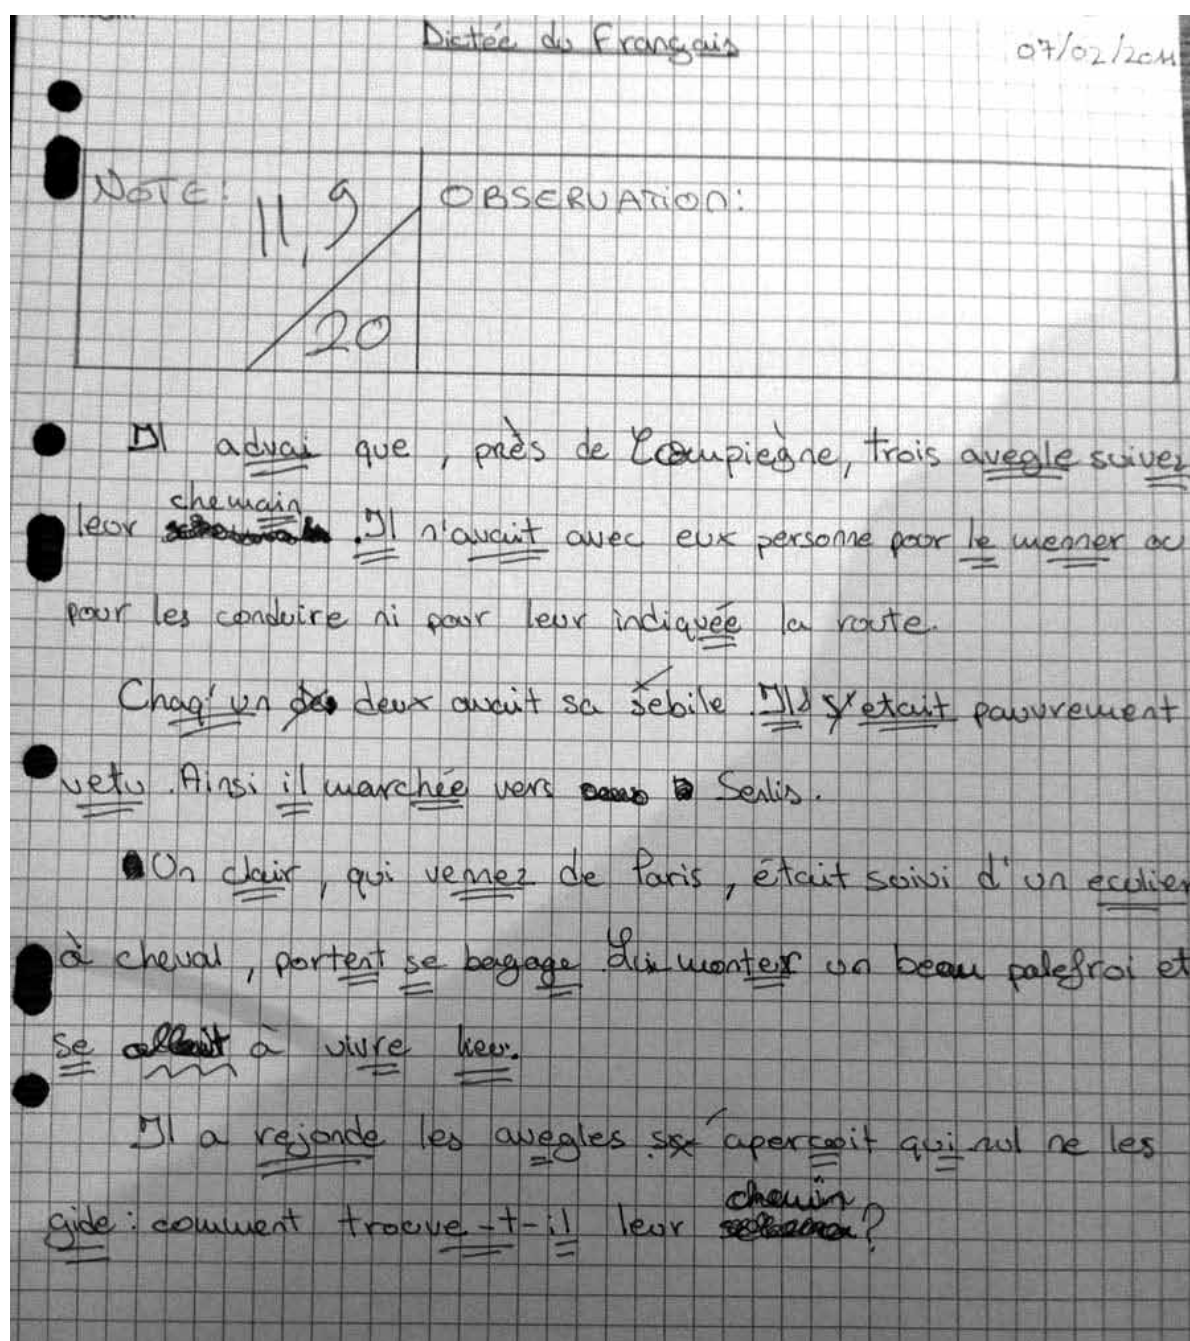 Dictée du Français
07/02/2011
NOTE: 11,9/20
OBSERVATION:
Il advai que, près de Compiegne, trois avegle suivez
leur chemain. Il n'avait avec eux personne pour le menner ou
pour les conduire ni pour leur indiquée la route.
Chaq'un deux avait sa sebile. Ils s'etait pauvrement
vetu. Ainsi il marchée vers Senlis.
Un clair, qui vennez de Paris, était suivi d'un ecolier
à cheval, portent se bagage. Lui monter un beau palefroi et
se allait à vivre lieu.
Il a rejonde les avegles s'apercoit qui nul ne les
gide: comment trouve-t-il leur chemin?